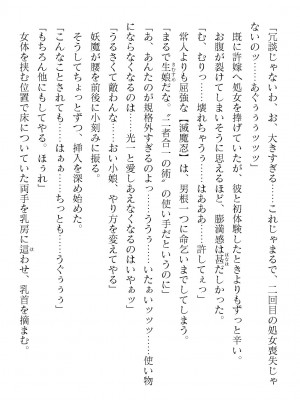 「冗談じゃないわ、お、大きすぎる……これじゃまるで、二回目の処女喪失じゃ
ないのッ……あぐぅぅぅッッッ」
既に許嫁へ処女を捧げていたが、彼と初体験したときよりもずっと辛い。
お腹が裂けてしまいそうに思えるほど、膨満感は甚だしかった。
「む、むりっ……壊れちゃうっ……はぁぁぁ……許してぇっ」
常人よりも屈強な【滅魔忍】は、男根一つに命乞いまでしてしまう。
「まるで生娘だな。〝番合〟の術〟の使い手だというのに」
「あ、あんたのが規格外すぎるのよっ……ううぅ……いたぁいッッッ……使い物
にならなくなるのは……光一と愛しあえなくなるのはいやぁッ」
「うるさくて敵わんな……おい小娘、やり方を変えてやる」
妖魔が腰を前後に小刻みに振る。
そうしてちょっとずつ、挿入を始めた。
「こんなことされても……はぁぁっ……ちっとも……うぐぅぅぅ」
「もちろん他にもしてやる。ほうれ」
女体を挟む位置で床についていた両手を乳房に這わせ、乳首を摘まむ。